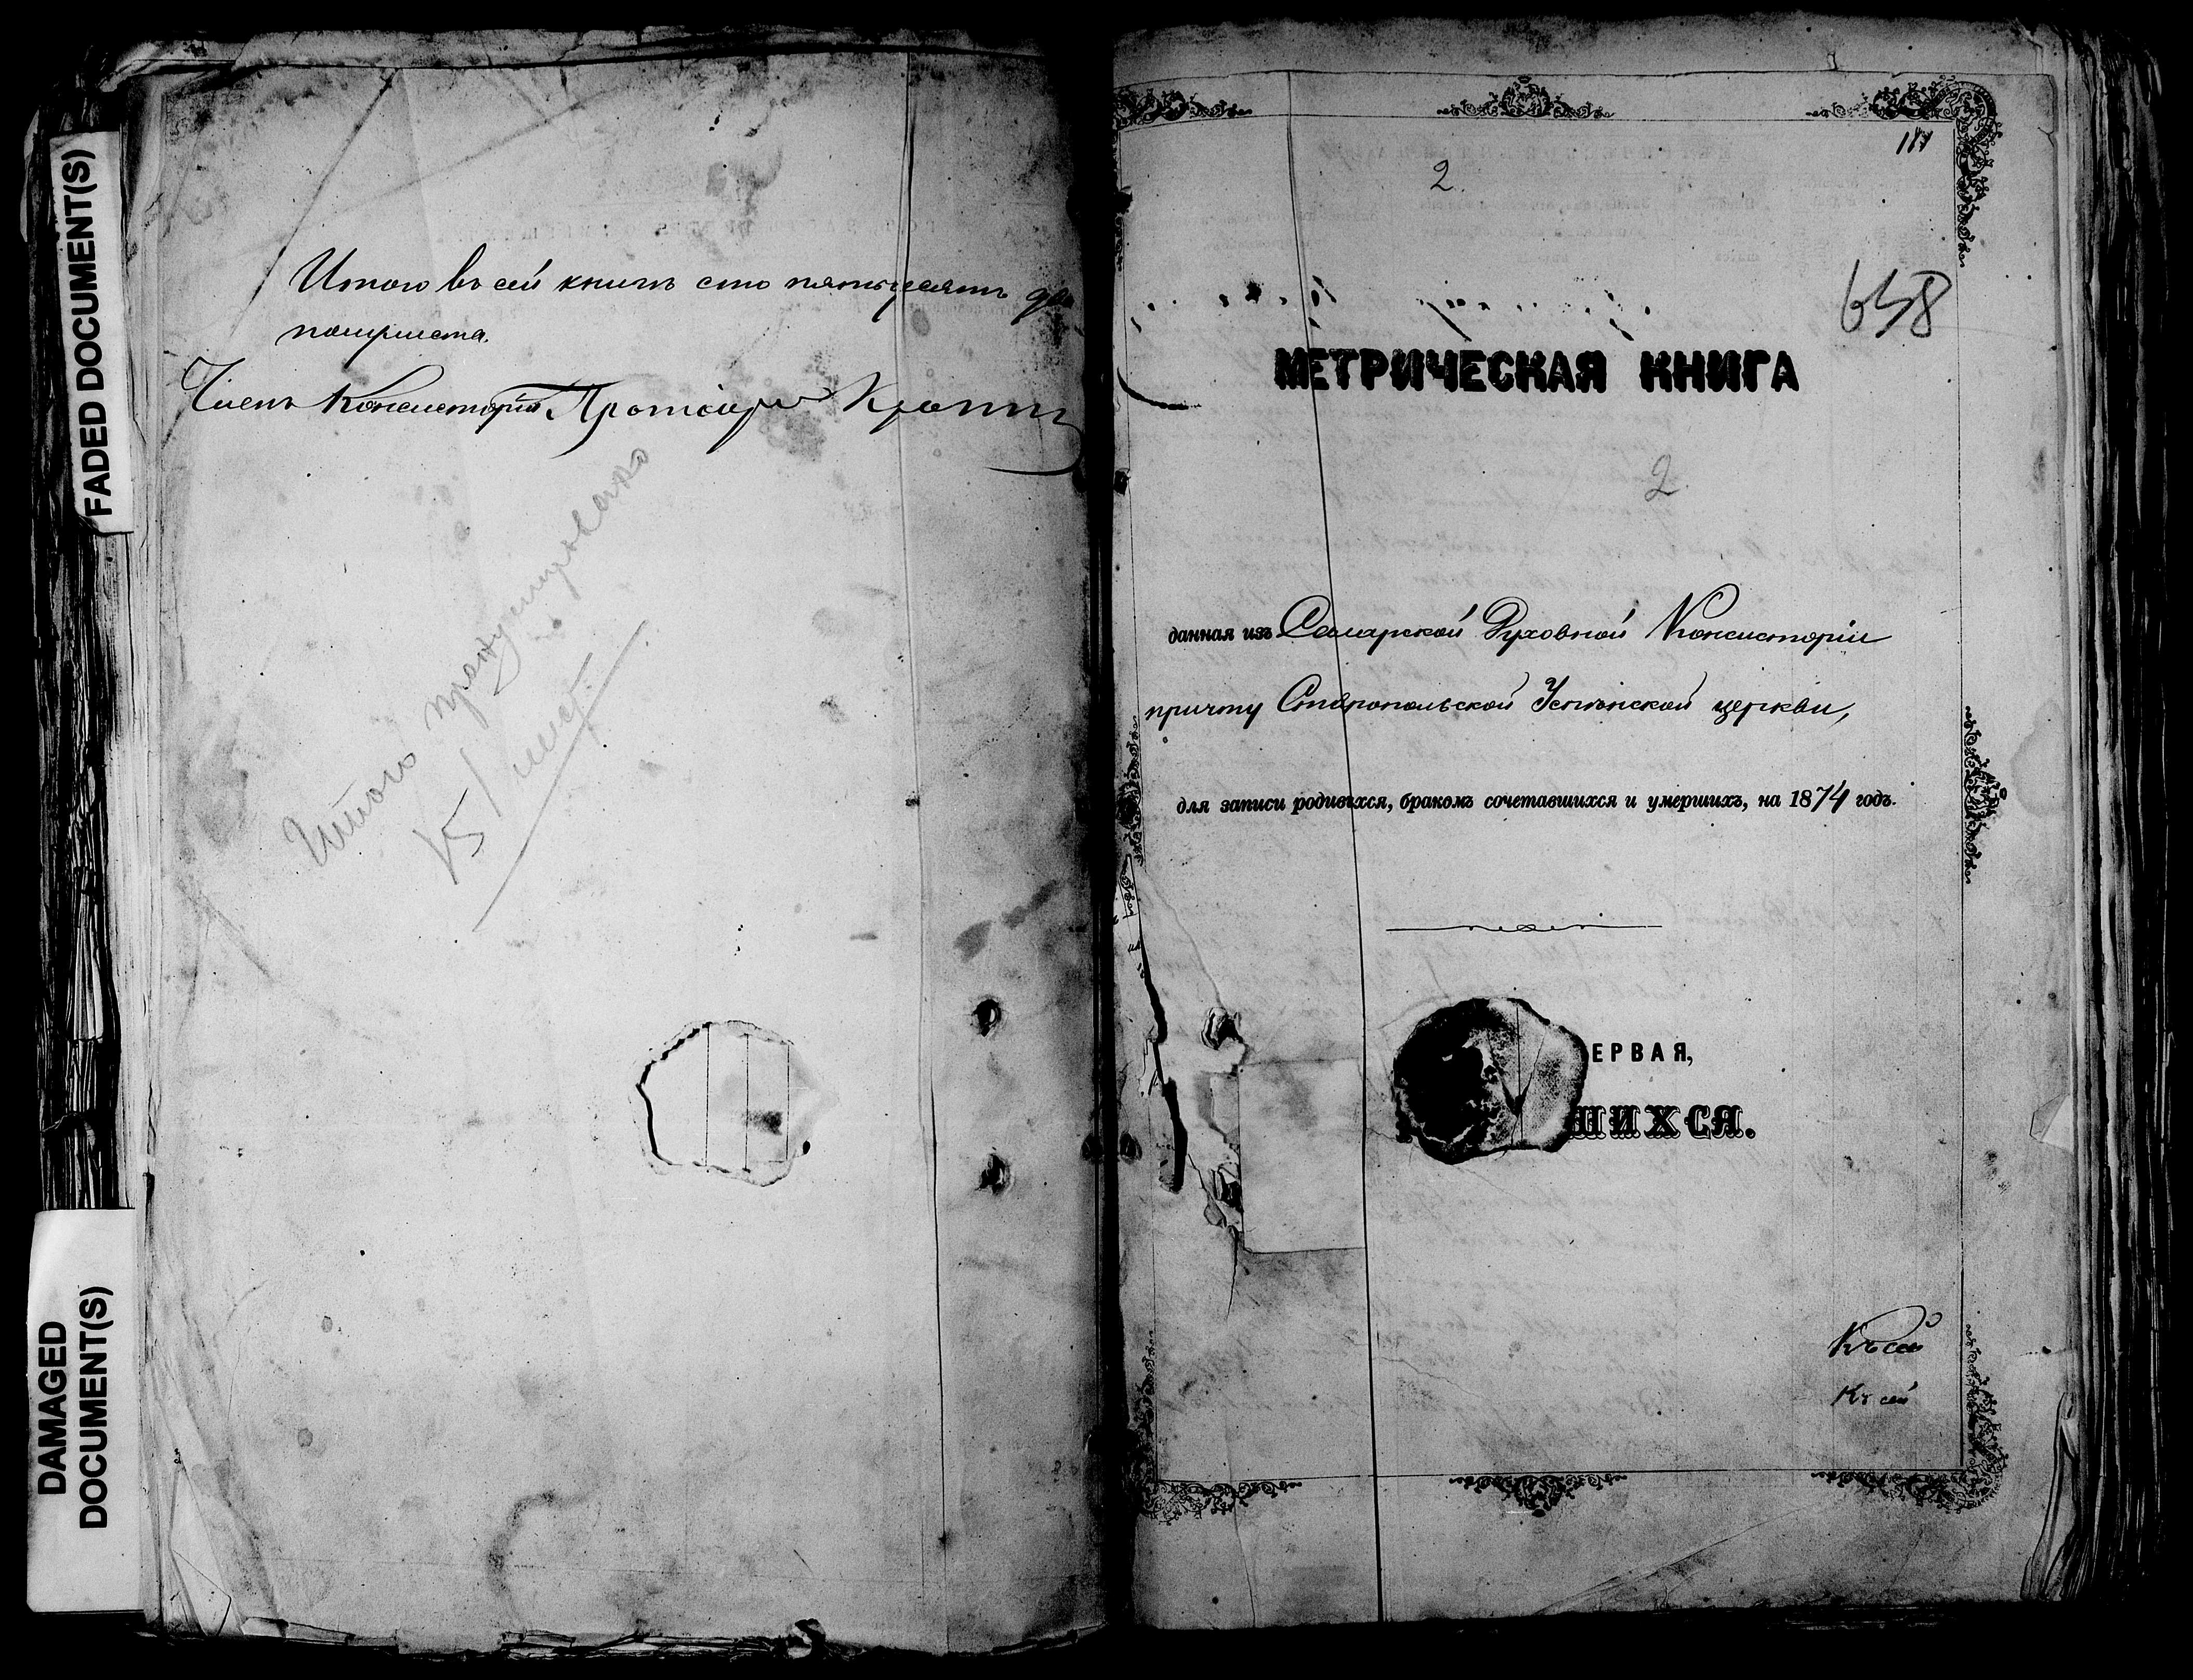 FADED DOCUMENT(S)
DAMAGED
DOCUMENT(S)
Итого въ сей книгѣ сто пятьдесятъ два
полулиста.
Членъ Консисторіи Протоіерей
Итого пронумеровано
151 лист.
2.
638
МЕТРИЧЕСКАЯ КНИГА
2
данная изъ Самарской Духовной Консисторіи
причту Ставропольской Успенской церкви,
для записи родившихся, бракомъ сочетавшихся и умершихъ, на 1874 годъ.
ЕРВАЯ,
ШИХСЯ.
Къ сей
Къ сей